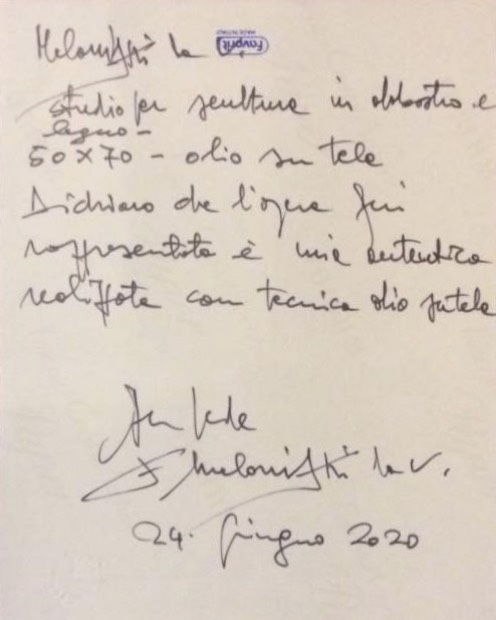 Meloniski da
favorit
MADE IN ITALY
studio per scultura in alabastro e
legno -
50x70 - olio su tela
Dichiaro che l'opera qui
rappresentata è mia autentica
realizzata con tecnica olio su tela
In fede
Meloniski da V.
24. Giugno 2020